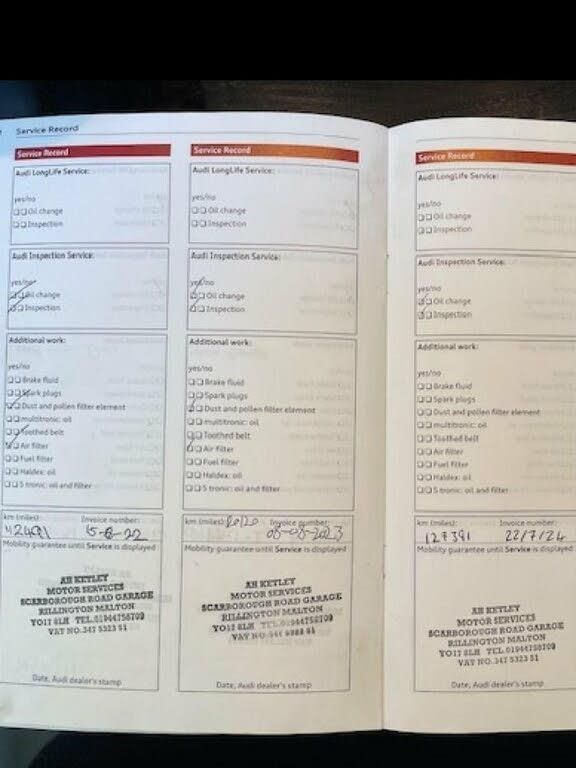 Service Record
Service Record
Audi LongLife Service:
yes/no
Oil change
Inspection
Audi Inspection Service:
yes/no
Oil change
Inspection
Additional work:
yes/no
Brake fluid
Spark plugs
Dust and pollen filter element
multitronic: oil
Toothed belt
Air filter
Fuel filter
Haldex: oil
S tronic: oil and filter
km (miles): Invoice number:
15-6-22
Mobility guarantee until Service is displayed
AH KETLEY
MOTOR SERVICES
SCARBOROUGH ROAD GARAGE
RILLINGTON MALTON
YO17 8LH TEL.01944758709
VAT NO.347 5323 51
Date, Audi dealer's stamp
Service Record
Audi LongLife Service:
yes/no
Oil change
Inspection
Audi Inspection Service:
yes/no
Oil change
Inspection
Additional work:
yes/no
Brake fluid
Spark plugs
Dust and pollen filter element
multitronic: oil
Toothed belt
Air filter
Fuel filter
Haldex: oil
S tronic: oil and filter
km (miles): Invoice number:
08-08-2023
Mobility guarantee until Service is displayed
AH KETLEY
MOTOR SERVICES
SCARBOROUGH ROAD GARAGE
RILLINGTON MALTON
YO17 8LH TEL.01944758709
VAT NO.
Date, Audi dealer's stamp
Service Record
Audi LongLife Service:
yes/no
Oil change
Inspection
Audi Inspection Service:
yes/no
Oil change
Inspection
Additional work:
yes/no
Brake fluid
Spark plugs
Dust and pollen filter element
multitronic: oil
Toothed belt
Air filter
Fuel filter
Haldex: oil
S tronic: oil and filter
km (miles): Invoice number:
127391 22/7/24
Mobility guarantee until Service is displayed
AH KETLEY
MOTOR SERVICES
SCARBOROUGH ROAD GARAGE
RILLINGTON MALTON
YO17 8LH TEL.01944758709
VAT NO.347 5323 51
Date, Audi dealer's stamp